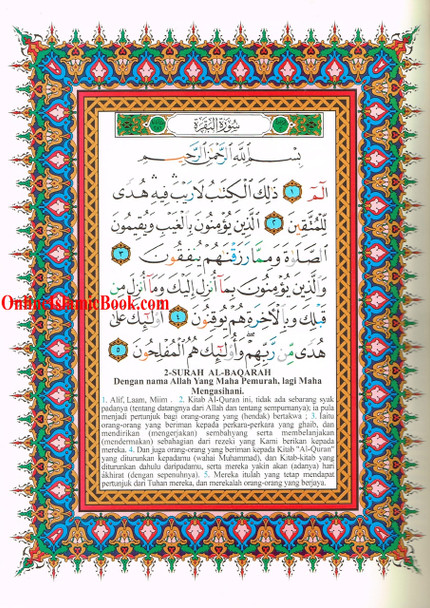 سُورَةُ الْبَقَرَةِ
بِسْمِ اللَّهِ الرَّحْمَٰنِ الرَّحِيمِ
الٓمٓ ١ ذَٰلِكَ الْكِتَٰبُ لَا رَيْبَ ۛ فِيهِ ۛ هُدًى
لِّلْمُتَّقِينَ ٢ الَّذِينَ يُؤْمِنُونَ بِالْغَيْبِ وَيُقِيمُونَ
الصَّلَاةَ وَمِمَّا رَزَقْنَٰهُمْ يُنفِقُونَ ٣
وَالَّذِينَ يُؤْمِنُونَ بِمَآ أُنزِلَ إِلَيْكَ وَمَآ أُنزِلَ مِن
Online-IslamicBook.com
قَبْلِكَ وَبِالْآخِرَةِ هُمْ يُوقِنُونَ ٤ أُو۟لَٰٓئِكَ عَلَىٰ
هُدًى مِّن رَّبِّهِمْ ۖ وَأُو۟لَٰٓئِكَ هُمُ الْمُفْلِحُونَ ٥
2-SURAH AL-BAQARAH
Dengan nama Allah Yang Maha Pemurah, lagi Maha
Mengasihani.
1. Alif, Laam, Miim . 2. Kitab Al-Quran ini, tidak ada sebarang syak
padanya (tentang datangnya dari Allah dan tentang sempurnanya); ia pula
menjadi petunjuk bagi orang-orang yang (hendak) bertakwa ; 3. Iaitu
orang-orang yang beriman kepada perkara-perkara yang ghaib, dan
mendirikan (mengerjakan) sembahyang serta membelanjakan
(mendermakan) sebahagian dari rezeki yang Kami berikan kepada
mereka. 4. Dan juga orang-orang yang beriman kepada Kitab "Al-Quran"
yang diturunkan kepadamu (wahai Muhammad), dan Kitab-kitab yang
diturunkan dahulu daripadamu, serta mereka yakin akan (adanya) hari
akhirat (dengan sepenuhnya). 5. Mereka itulah yang tetap mendapat
pertunjuk dari Tuhan mereka, dan merekalah orang-orang yang berjaya.